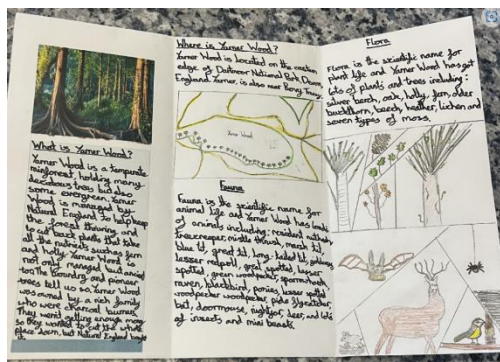 What is Yarner Wood?
Yarner Wood is a temperate
rainforest, holding many
deciduous trees but also
some evergreen. Yarner
Wood is managed by
Natural England to help keep
the forest thriving and
to cut down plants that take
all the nutrients such as fern
and holly. Yarner Wood is
not only managed but ancient
too. The boundry and pioneer
trees tell us so. Yarner Wood
was owned by a rich family
who were charcoal burners.
They weren't getting enough money
so they wanted to cut the whole
place down, but Natural England bought
it.
Where is Yarner Wood?
Yarner Wood is located on the eastern
edge of Dartmoor National Park, Devon
England. Yarner, is also near Bovey Tracey.
Yarner Wood
Fauna
Fauna is the scientific name for
animal life and Yarner Wood has loads
of animals including: resident nuthatch,
treecreeper, mistle thrush, marsh tit,
blue tit, great tit, long-tailed tit, goldcrest,
lesser redpoll, great spotted, lesser
spotted, green woodpecker, sparrowhawk,
raven, blackbird, ponies, lesser spotted
woodpecker woodpecker, pied flycatcher,
bat, doormouse, nightjar, deer, and lots
of insects and mini beasts.
Flora
Flora is the scientific name for
plant life and Yarner Wood has got
lots of plants and trees including:
silver berch, oak, holly, fern, alder
buckthorn, beech, heather, lichen and
seven types of moss.